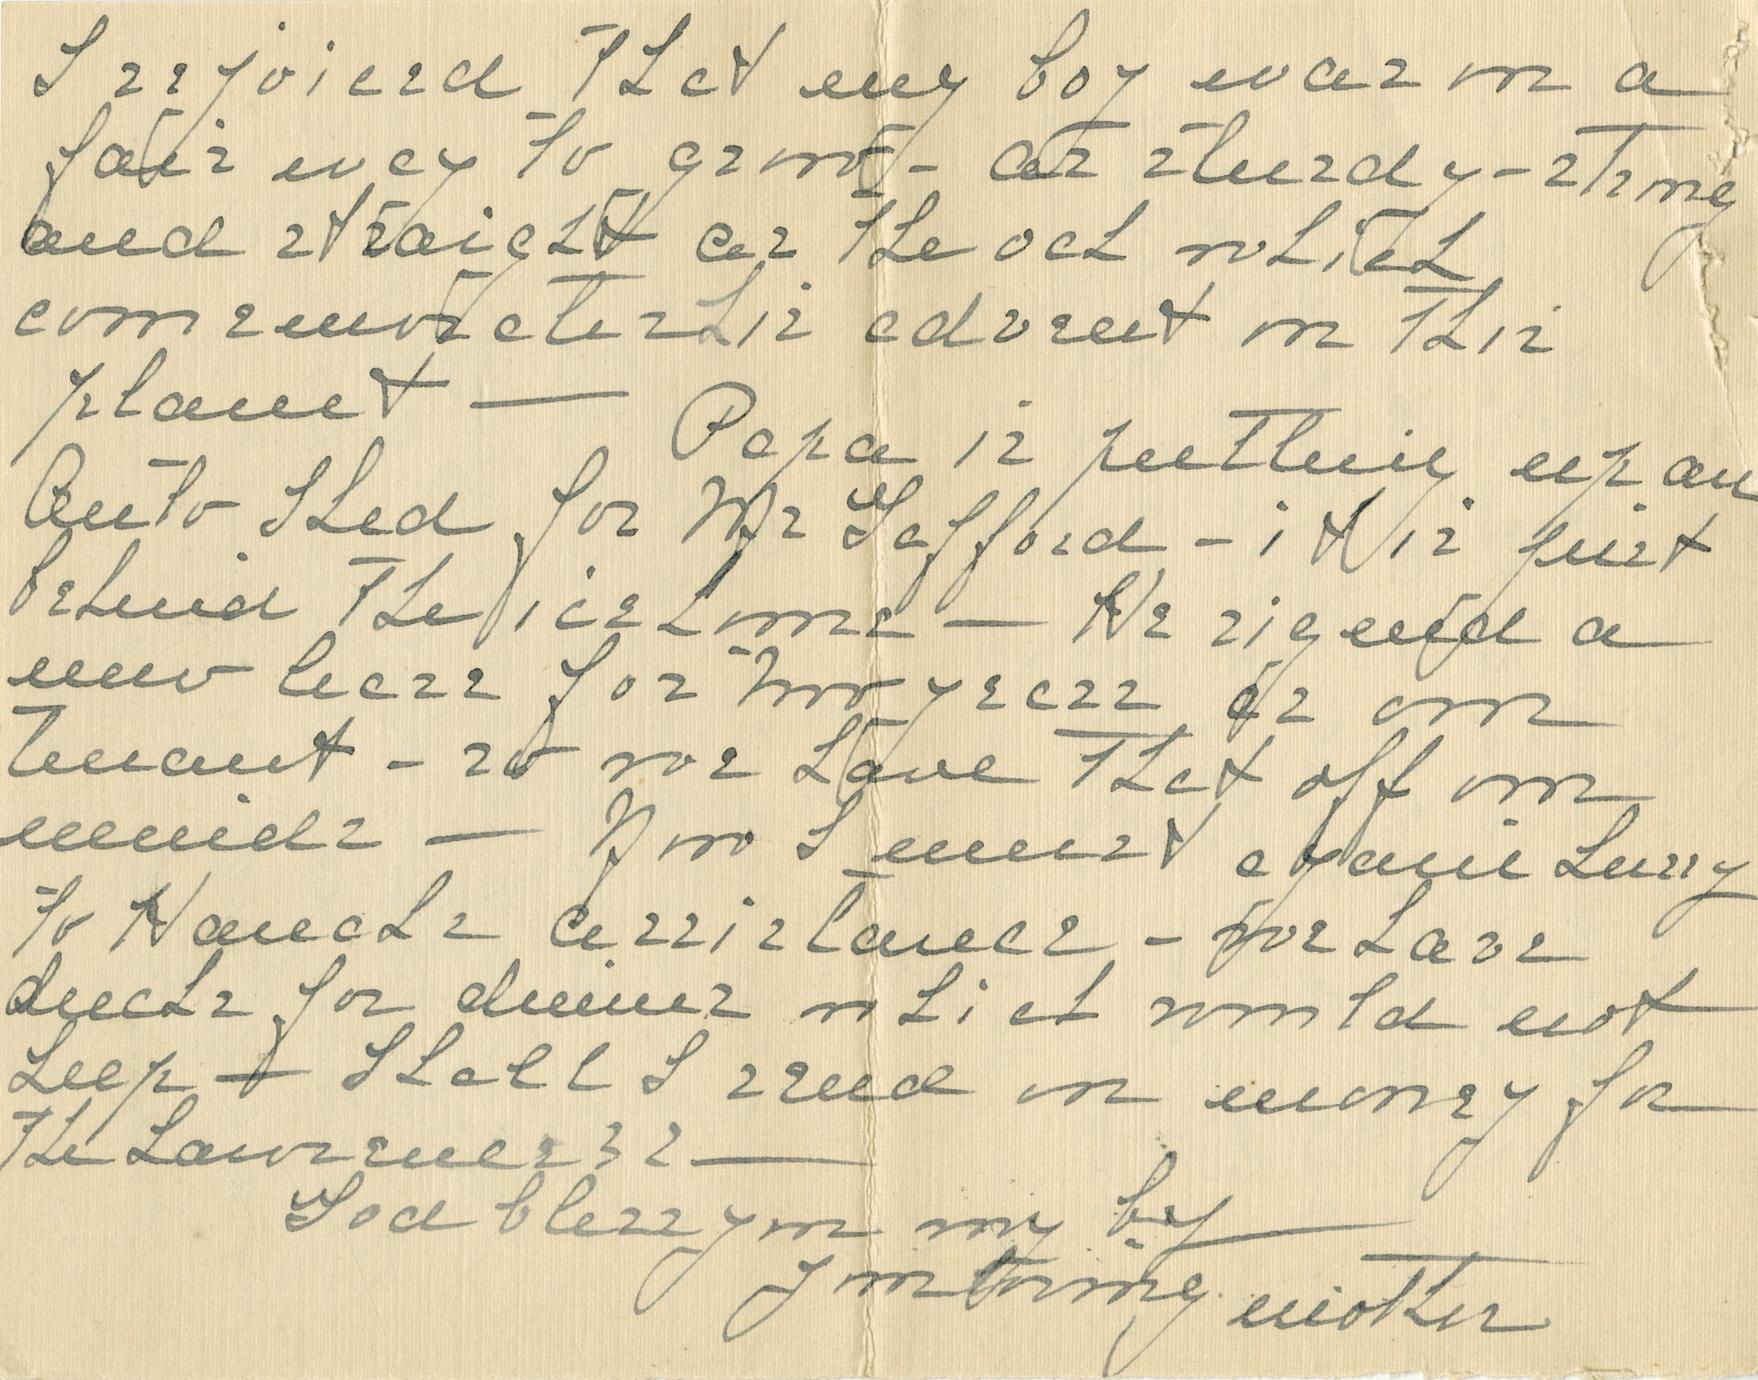 I rejoiced that my boy was on a
fair way to grow - as sturdy - strong
and straight as the oak which
commemorates his advent on this
planet — Papa is putting up an
Auto Shed for Mr Gafford - it is just
behind the ice house — He signed a
new lease for two years as our
tenant - so we have that off our
minds — Now I must again hurry
to Hannah's assistance - we have
ducks for dinner which would not
keep — Shall I send on money for
the Lawrences? —
God bless you my boy
Your loving mother